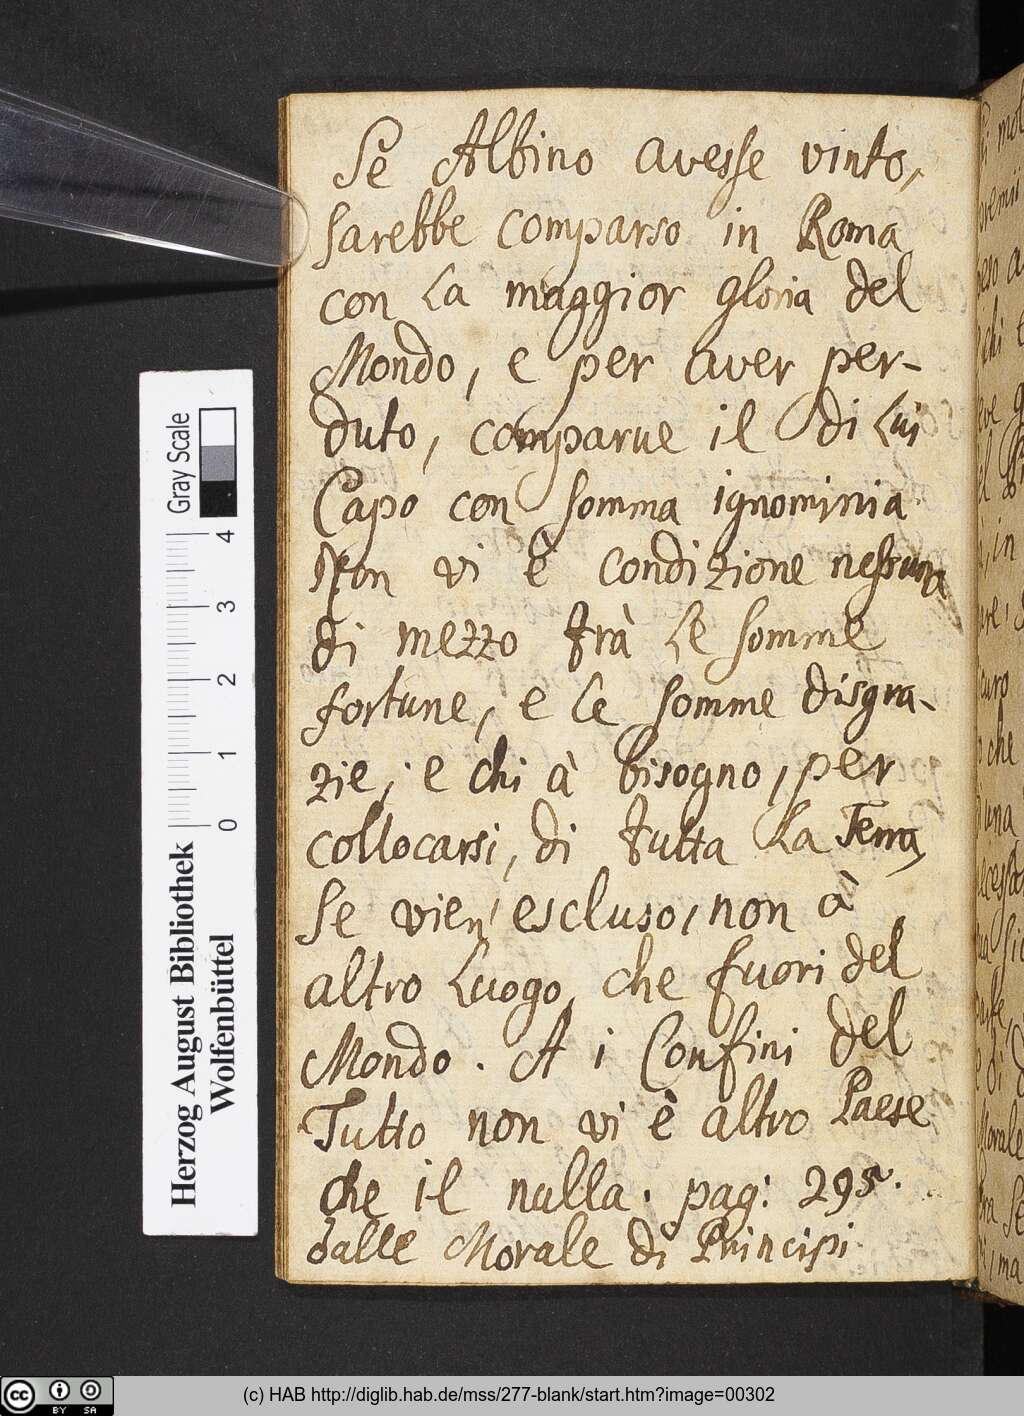 Se Albino avesse vinto,
sarebbe comparso in Roma
con la maggior gloria del
Mondo, e per aver per-
duto, comparve il di lui
Capo con somma ignominia.
Non vi è condizione nessuna
di mezzo trà le somme
fortune, e le somme disgra-
zie; e chi à bisogno, per
collocarsi, di tutta la Terra,
se vien' escluso, non à
altro luogo, che fuori del
Mondo. A i Confini del
Tutto non vi è altro Paese
che il nulla. pag: 295.
dalle Morale di Principi.
Gray Scale
0 1 2 3 4
Herzog August Bibliothek
Wolfenbüttel
cc BY SA
(c) HAB http://diglib.hab.de/mss/277-blank/start.htm?image=00302